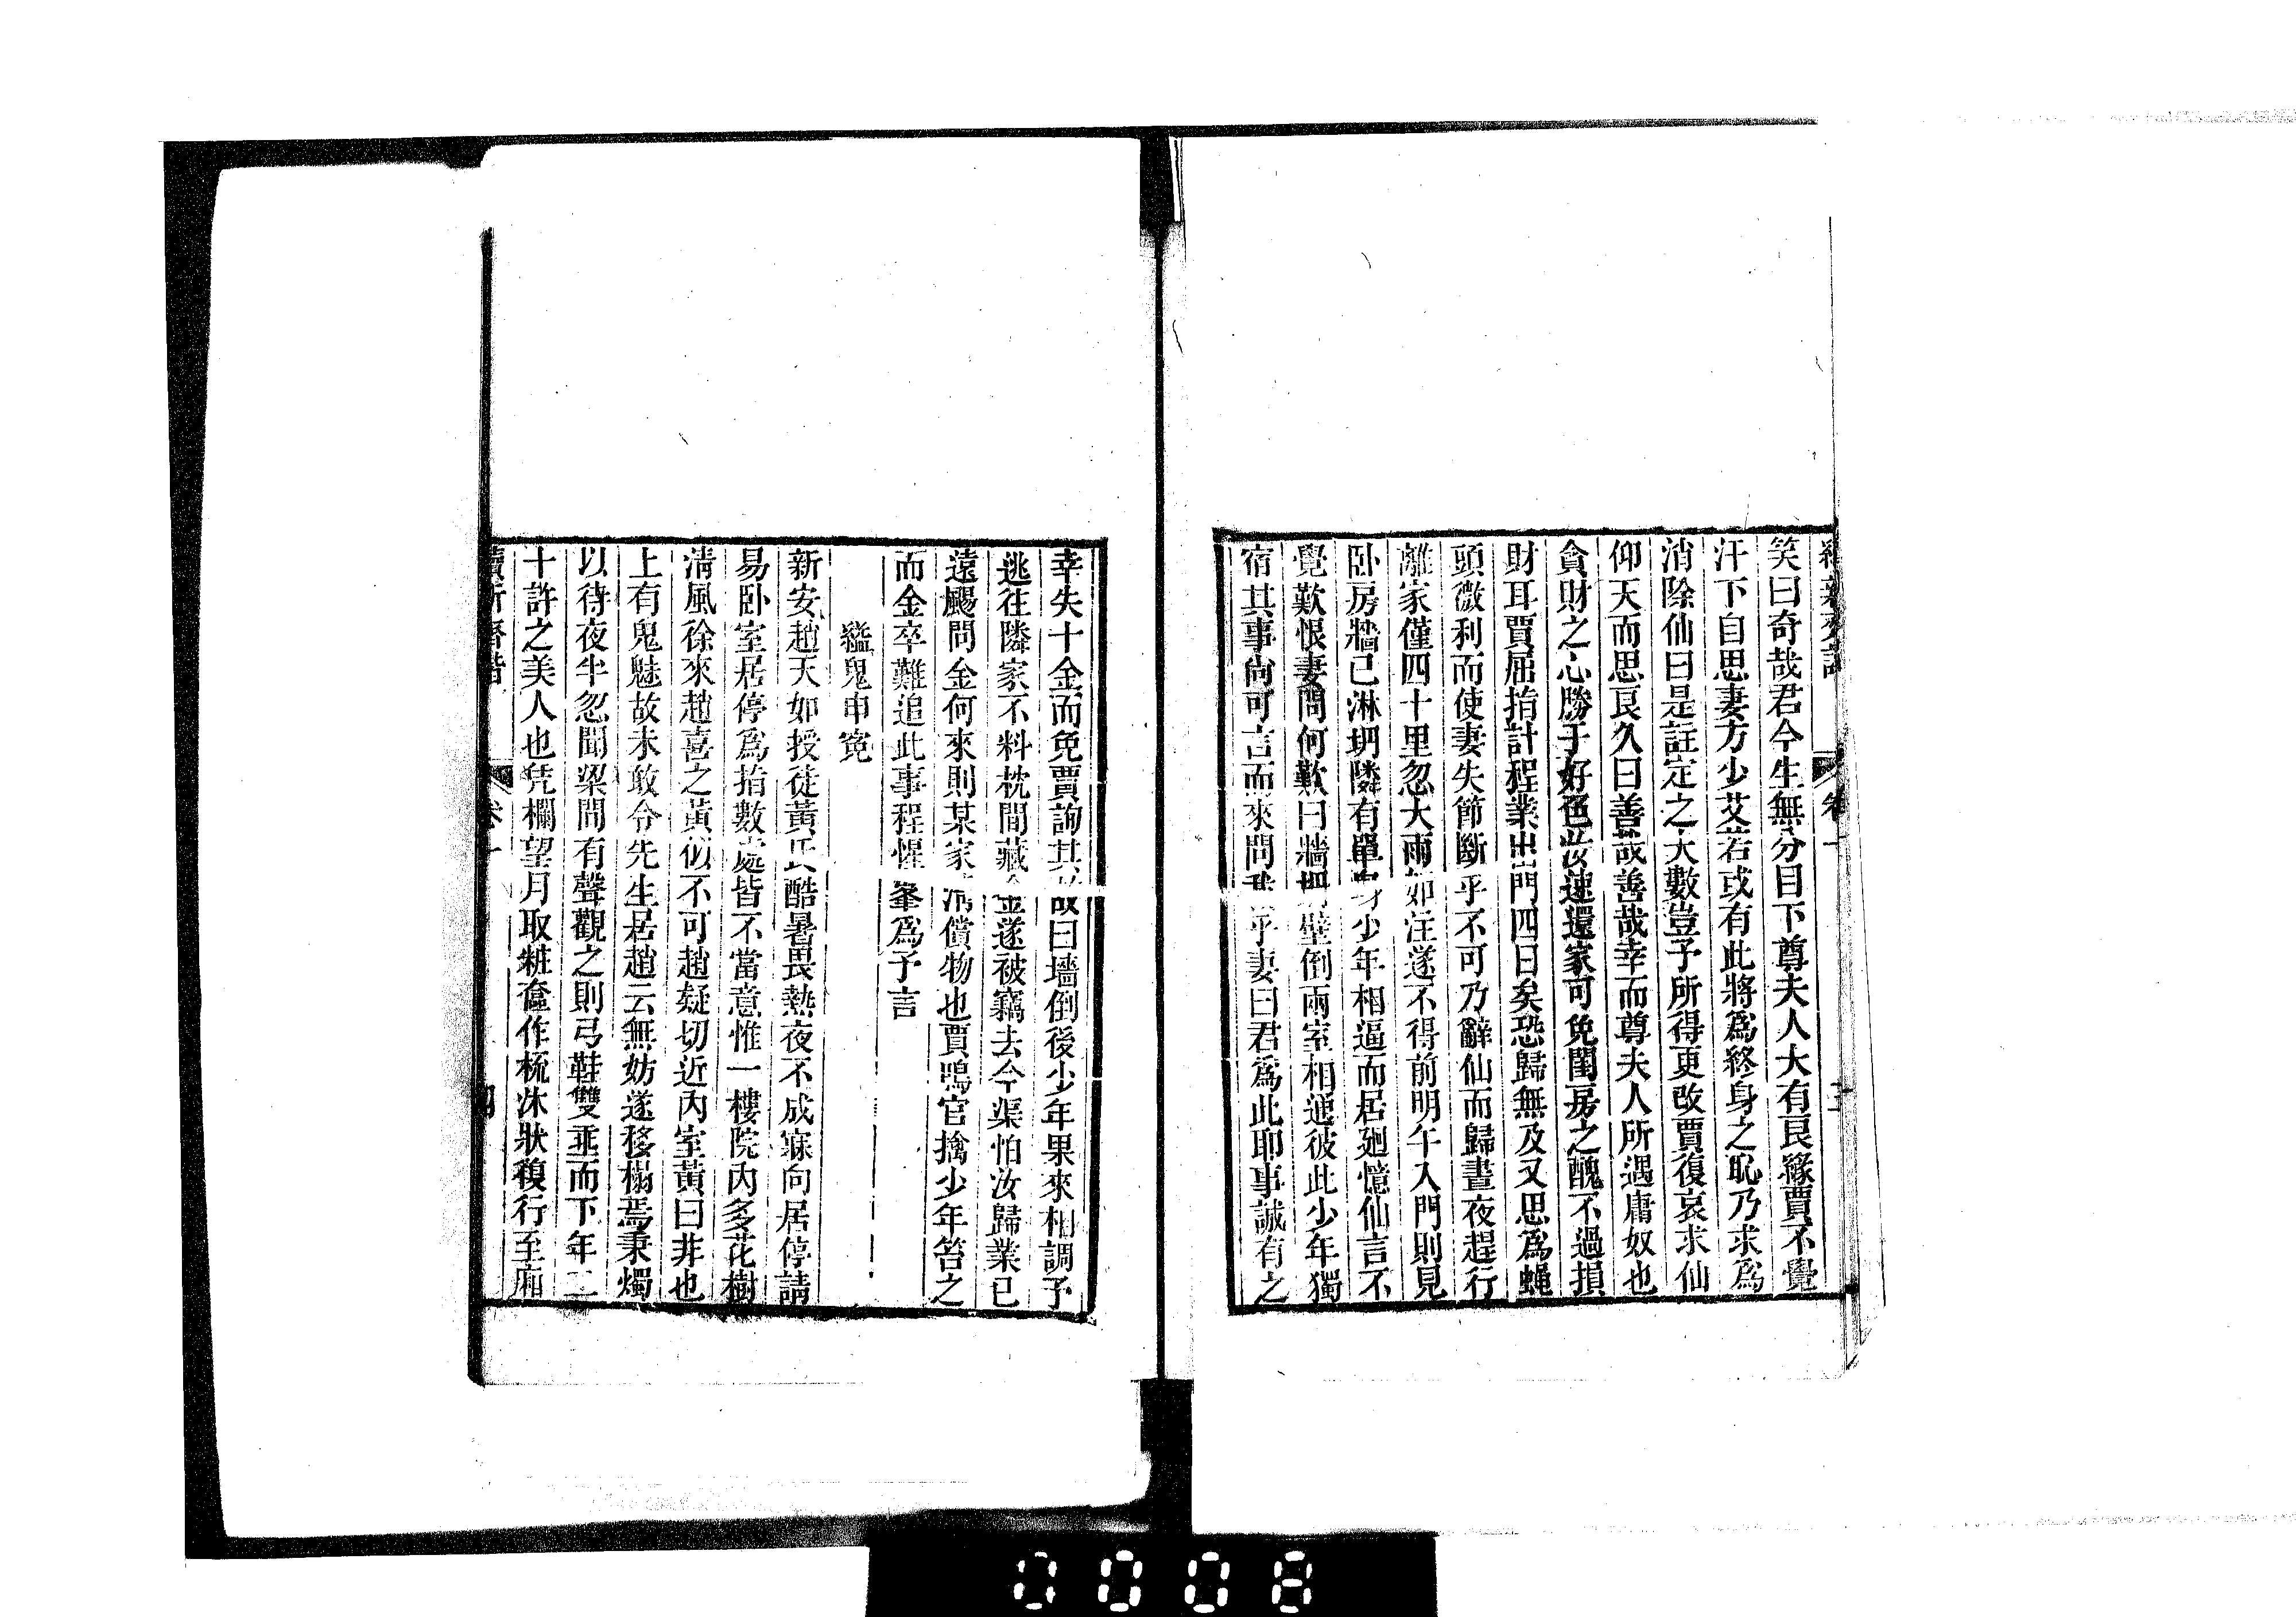 笑曰奇哉君今生無分目下尊夫人大有良緣賈不覺
汗下自思妻方少艾若或有此將爲終身之恥乃求爲
消除仙曰是註定之大數豈予所得更改賈復哀求仙
仰天而思良久曰善哉善哉幸而尊夫人所遇庸奴也
貪財之心勝于好色汝速還家可免閨房之醜不過損
財耳賈屈指計程業出門四日矣恐歸無及又思爲蠅
頭微利而使妻失節斷乎不可乃辭仙而歸晝夜趕行
離家僅四十里忽大雨如注遂不得前明午入門則見
卧房牆已淋坍隣有單身少年相逼而居廻憶仙言不
覺歎恨妻問何歎曰牆坍壁倒兩室相連彼此少年獨
宿其事尙可言而來問我乎妻曰君爲此耶事誠有之
幸失十金而免賈詢其故曰墻倒後少年果來相調予
逃往隣家不料枕間藏金遂被竊去今渠怕汝歸業已
遠颺問金何來則某家淸償物也賈鳴官擒少年笞之
而金卒難追此事程惺峯爲予言
縊鬼申寃
新安趙天如授徒黃氏酷暑畏熱夜不成寐向居停請
易卧室居停爲指數處皆不當意惟一樓院內多花樹
淸風徐來趙喜之黃似不可趙疑切近內室黃曰非也
上有鬼魅故未敢令先生居趙云無妨遂移榻焉秉燭
以待夜半忽聞梁間有聲觀之則弓鞋雙垂而下年二
十許之美人也凭欄望月取粧奩作梳沐狀稷行至廂
續新齊諧
卷一
四